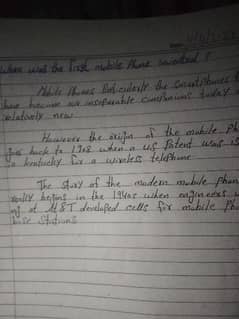 When was the first mobile Phone invented ?
Mobile Phones Particularly the Smartphones
have become our inseparable companions today
relatively new
However the origin of the mobile Ph
goes back to 1908 when a US Patent was is
in kentucky for a wireless telephone
The Story of the modern mobile phon
really begins in the 1940s when engineers w
ng at AT&T developed cells for mobile Pho
base Stations